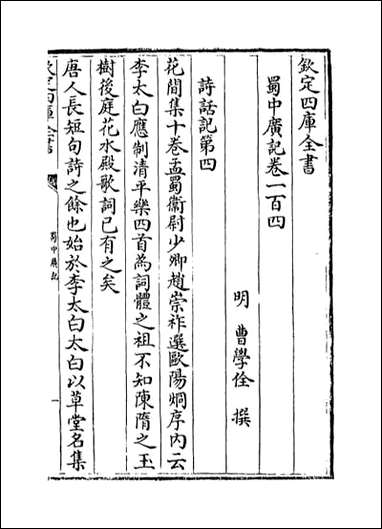 欽定四庫全書
蜀中廣記卷一百四
明 曹學佺 撰
詩話記第四
花間集十卷孟蜀衞尉少卿趙崇祚選歐陽烱序内云
李太白應制清平樂四首為詞體之祖不知陳隋之玉
樹後庭花水殿歌詞已有之矣
唐人長短句詩之餘也始於李太白太白以草堂名集
欽定四庫全書
蜀中廣記
一